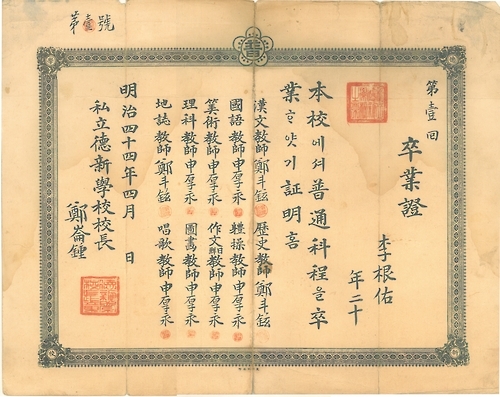 第壹號
第壹回
卒業證
李根佑
年二十
本校에셔普通科程을卒
業ᄒᆞ얏기證明홈
漢文教師鄭斗鉉 歷史教師鄭斗鉉
國語教師申厚永 體操教師申厚永
筭術教師申厚永 作文教師申厚永
理科教師申厚永 圖畵教師申厚永
地誌教師鄭斗鉉 唱歌教師申厚永
明治四十四年四月 日
私立德新學校校長
鄭崙鍾